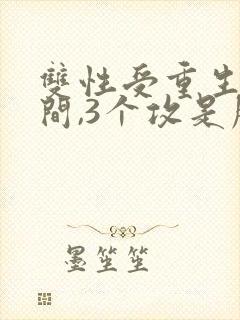 雙性受重生
間,3个攻是
墨笙笙